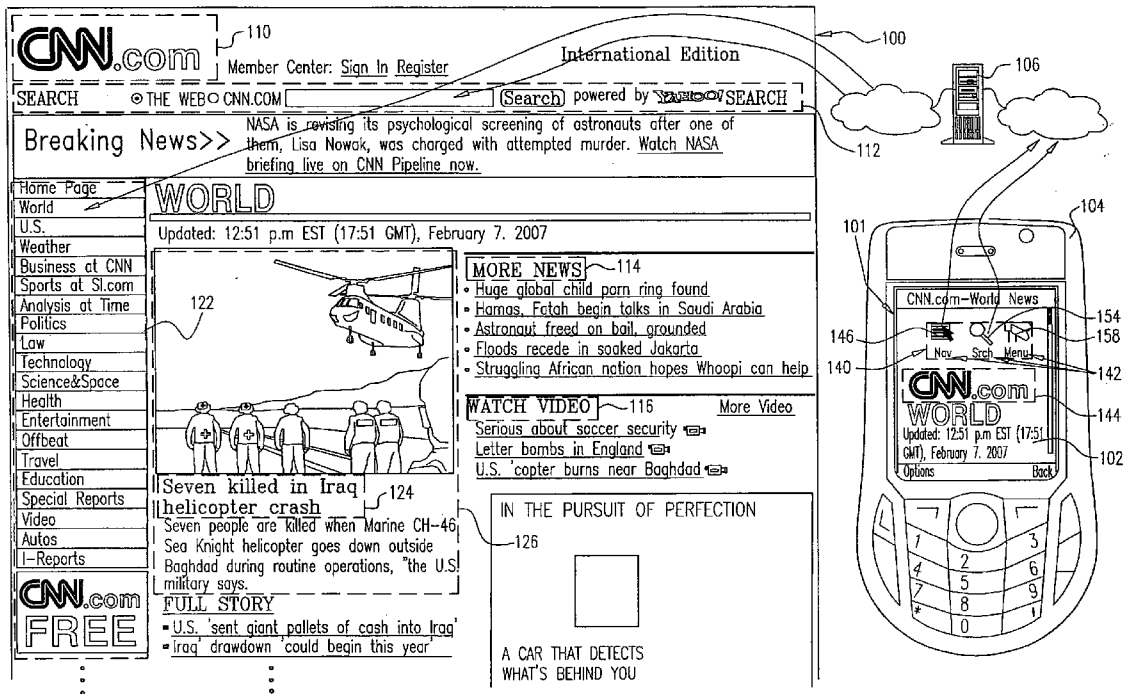 CNN.com
110
Member Center: Sign In Register
International Edition
100
106
SEARCH THE WEB CNN.COM Search powered by YAHOO! SEARCH
112
Breaking News>>
NASA is revising its psychological screening of astronauts after one of
them, Lisa Nowak, was charged with attempted murder. Watch NASA
briefing live on CNN Pipeline now.
Home Page
World
U.S.
Weather
Business at CNN
Sports at SI.com
Analysis at Time
Politics
Law
Technology
Science&Space
Health
Entertainment
Offbeat
Travel
Education
Special Reports
Video
Autos
I-Reports
CNN.com
FREE
WORLD
Updated: 12:51 p.m EST (17:51 GMT), February 7. 2007
122
Seven killed in Iraq
helicopter crash
124
Seven people are killed when Marine CH-46
Sea Knight helicopter goes down outside
Baghdad during routine operations, "the U.S
military says.
126
FULL STORY
U.S. 'sent giant pallets of cash into Iraq'
Iraq' drawdown 'could begin this year'
MORE NEWS
114
Huge global child porn ring found
Hamas, Fatah begin talks in Saudi Arabia
Astronaut freed on bail, grounded
Floods recede in soaked Jakarta
Struggling African nation hopes Whoopi can help
WATCH VIDEO
116
More Video
Serious about soccer security
Letter bombs in England
U.S. 'copter burns near Baghdad
IN THE PURSUIT OF PERFECTION
A CAR THAT DETECTS
WHAT'S BEHIND YOU
101
104
CNN.com-World News
154
146
158
Nav Srch Menu
140
142
CNN.com
144
WORLD
Updated: 12:51 p.m EST (17:51
GMT), February 7. 2007
102
Options Back
1
2
3
4
5
6
7
8
9
*
0